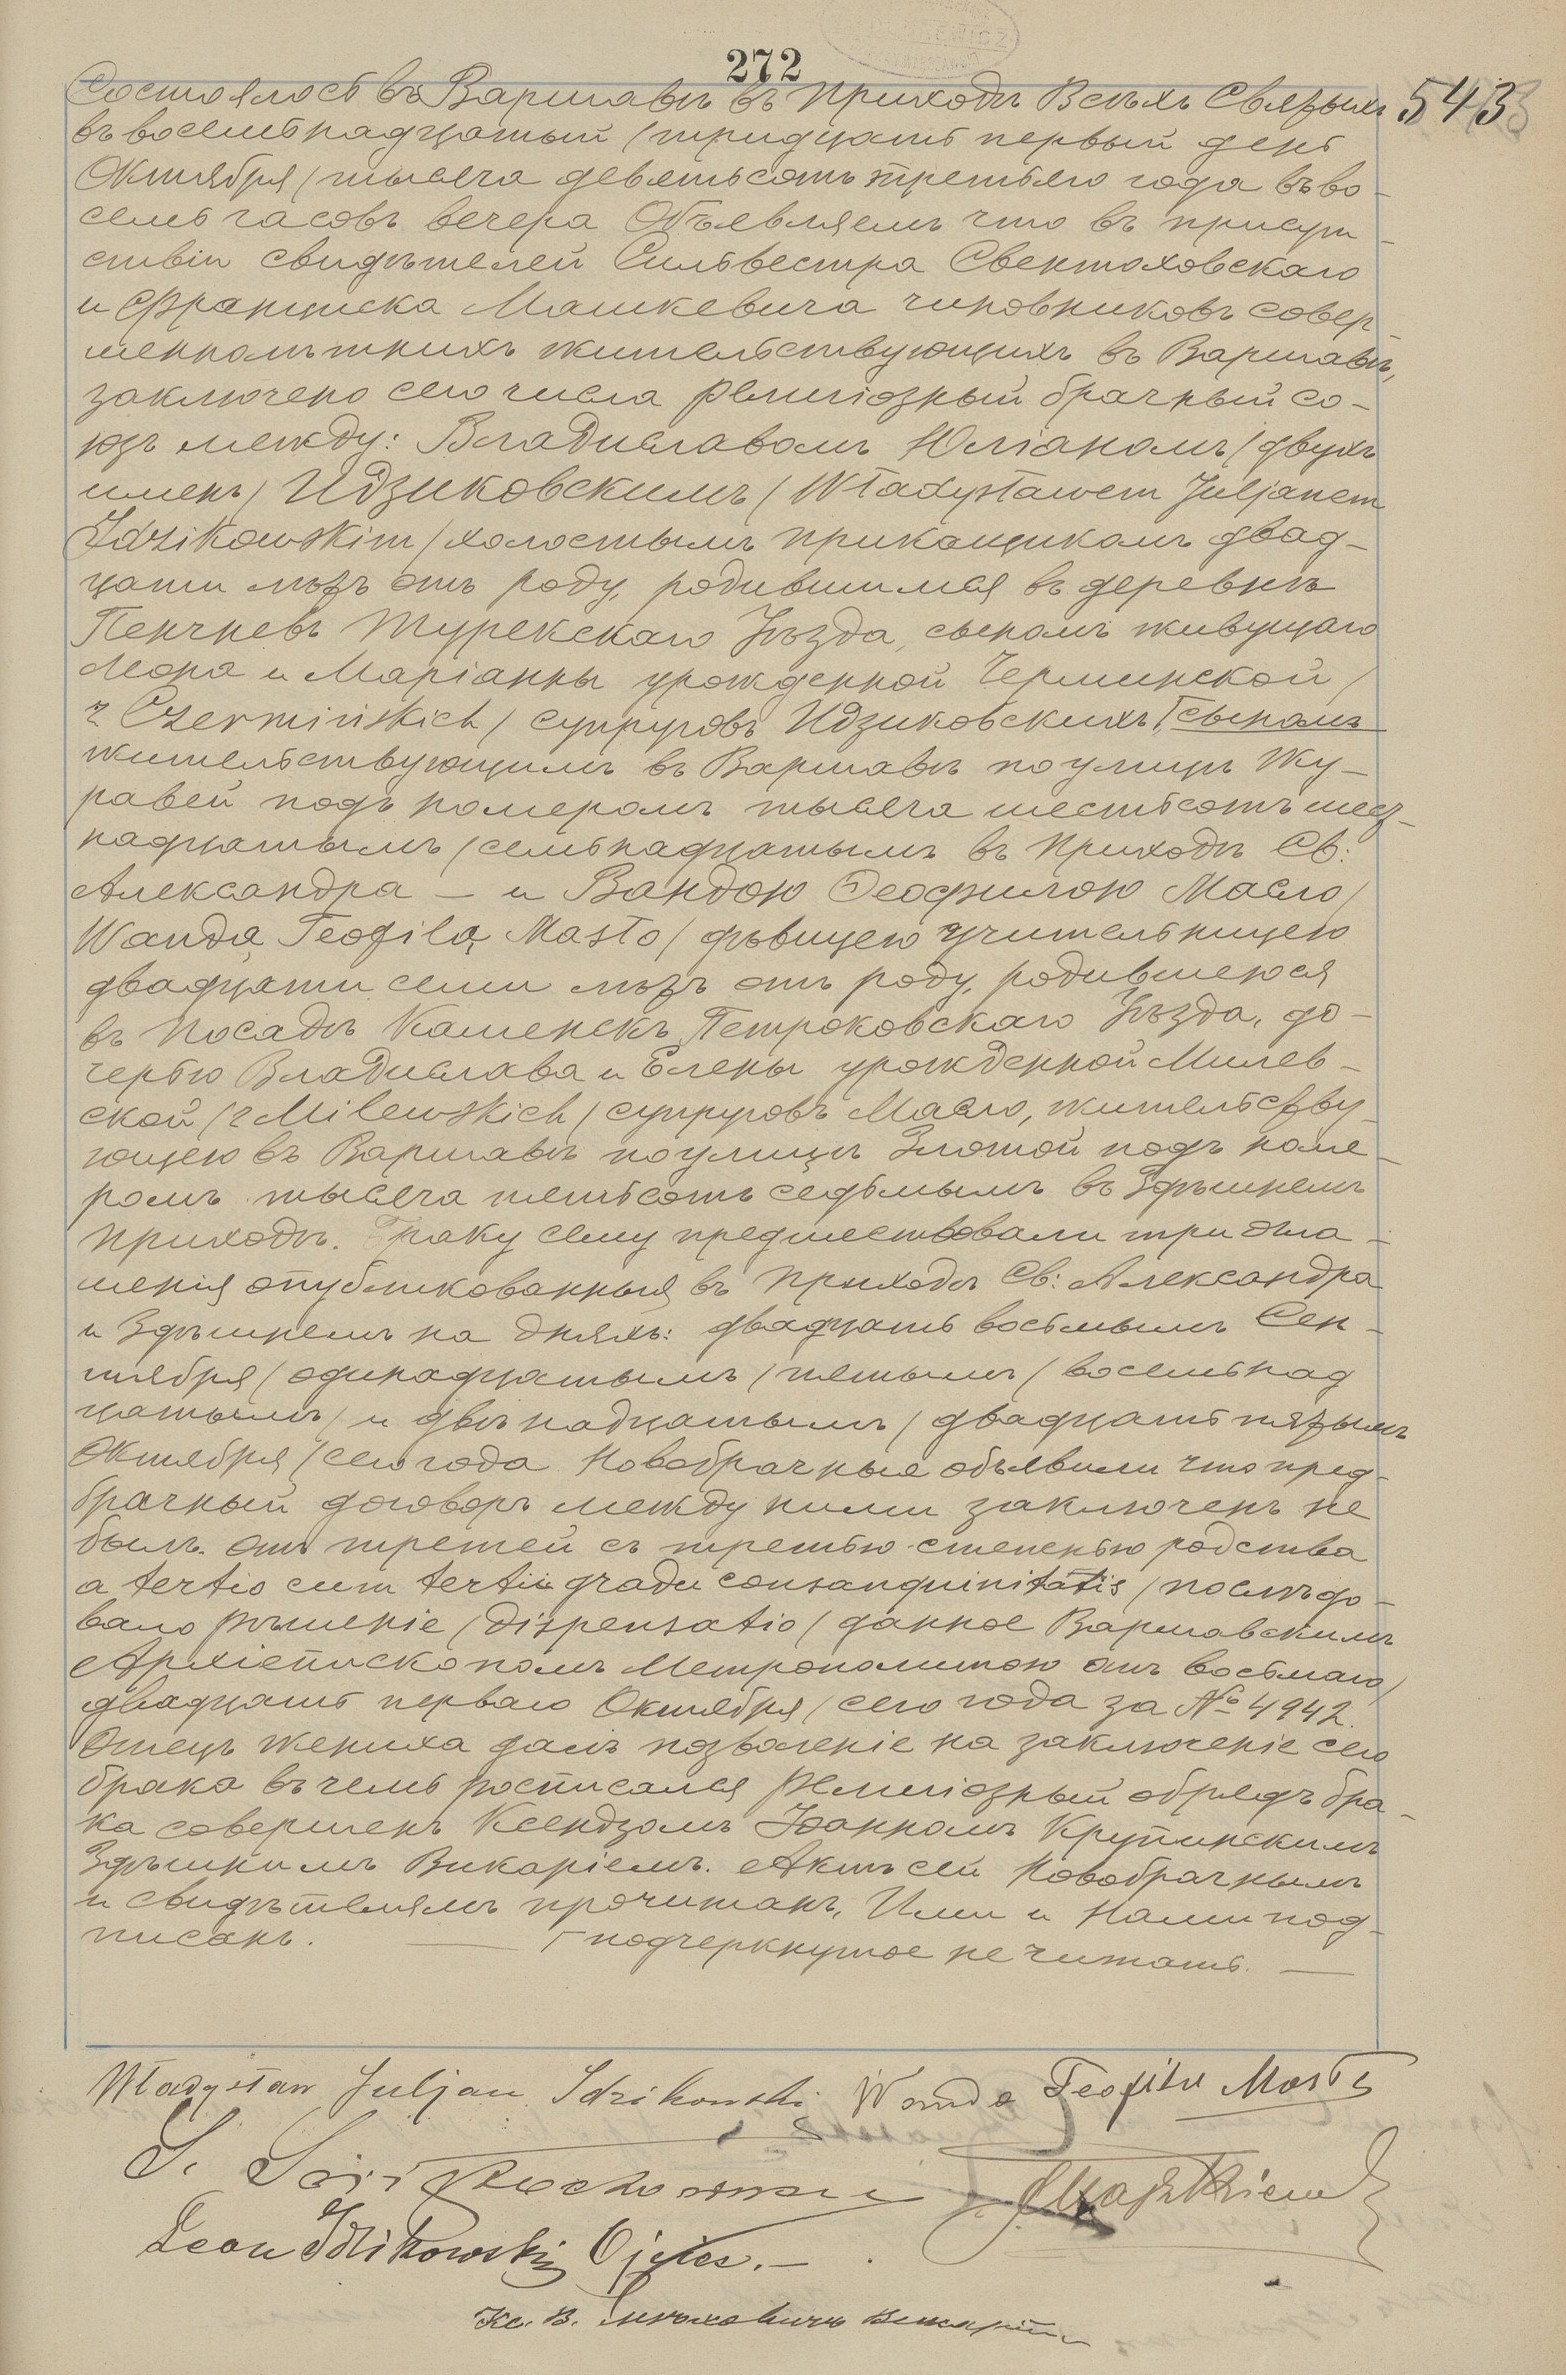 272
543
Состоялось въ Варшавѣ въ Приходѣ Всѣхъ Святыхъ
въ восемьнадцатый /тридцать первый день
Октября/ тысяча девятьсотъ третьяго года въ во-
семь часовъ вечера Объявляемъ что въ присут-
ствіи свидѣтелей Сильвестра Свентоховскаго
и Францишка Машкевича чиновниковъ совер-
шеннолѣтнихъ жительствующихъ въ Варшавѣ,
заключено сего числа религіозный брачный со-
юзъ между: Владиславомъ Юліаномъ /двухъ
именъ/ Идзиковскимъ /Władysławem Juljanem
Idzikowskim/ холостымъ прикащикомъ двад-
цати лѣтъ отъ роду, родившимся въ деревнѣ
Пенчневъ Турекскаго Уѣзда, сыномъ живущаго
Леона и Маріанны урожденной Черминской /
z Czermińskich/ супруговъ Идзиковскихъ, ⌈сыномъ
жительствующимъ въ Варшавѣ по улицѣ Жу-
равей подъ номеромъ тысяча шестьсотъ шест-
надцатымъ /семьнадцатымъ въ Приходѣ Св:
Александра – и Вандою Теофилою Масло /
Wandą Teofilą Masło/ дѣвицею учительницею
двадцати семи лѣтъ отъ роду, родившеюся
въ Посадѣ Каменскъ Петроковскаго Уѣзда, до-
черью Владислава и Елены урожденной Милев-
ской /z Milewskich/ супруговъ Масло, жительству-
ющею въ Варшавѣ по улицѣ Злотой подъ номе-
ромъ тысяча пятьсотъ седьмымъ въ Здѣшнемъ
Приходѣ. Браку сему предшествовали три огла-
шенія опубликованныя въ Приходѣ Св: Александра
и Здѣшнемъ на дняхъ: двадцать восьмымъ Сен-
тября /одинадцатымъ/ пятымъ /восемьнад
цатымъ/ и двѣнадцатымъ /двадцать пятымъ
Октября/ сего года Новобрачные объявили что пред-
брачный договоръ между ними заключенъ не
былъ. Отъ третей съ третью степенью родства
a tertio cum tertii gradu consanguinitatis/ послѣдо-
вало рѣшеніе /dispensatio/ данное Варшавскимъ
Архіепископомъ Метрополитою отъ восьмаго/
двадцать перваго Октября/ сего года за № 4942.
Отецъ жениха далъ позволеніе на заключеніе сего
брака въ чемъ росписался Религіозный обрядъ бра-
ка совершенъ Ксендзомъ Іоанномъ Крупинскимъ
Здѣшнимъ Викаріемъ. Актъ сей Новобрачнымъ
и свидѣтелямъ прочитанъ, Ими и Нами под-
писанъ. — ⌈подчеркнутое не читать. —
Władysław Juljan Idzikowski Wanda Teofila Masło
S. Świętochowski Maszkiewicz
Leon Idzikowski Ojciec. —
Кс. В. Викарій